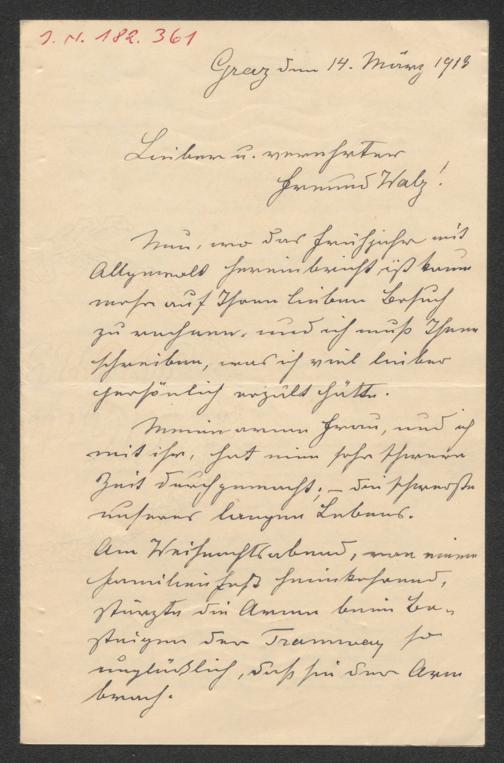 J. N. 182. 361
Graz den 14. März 1913
Lieber u. verehrter
Freund Walz!
Nun, wo das Frühjahr mit
Allgewalt hereinbricht, ist kaum
mehr auf Ihren lieben Besuch
zu rechnen, und ich muß Ihnen
schreiben, was ich viel lieber
persönlich erzält hätte.
Meine arme Frau, und ich
mit ihr, hat eine sehr schwere
Zeit durchgemacht; – die schwerste
unseres langen Lebens.
Am Weihnachtsabend, von einem
Familienfest heimkehrend,
stürzte die Arme beim Be-
steigen der Tramway so
unglücklich, daß sie den Arm
brach.